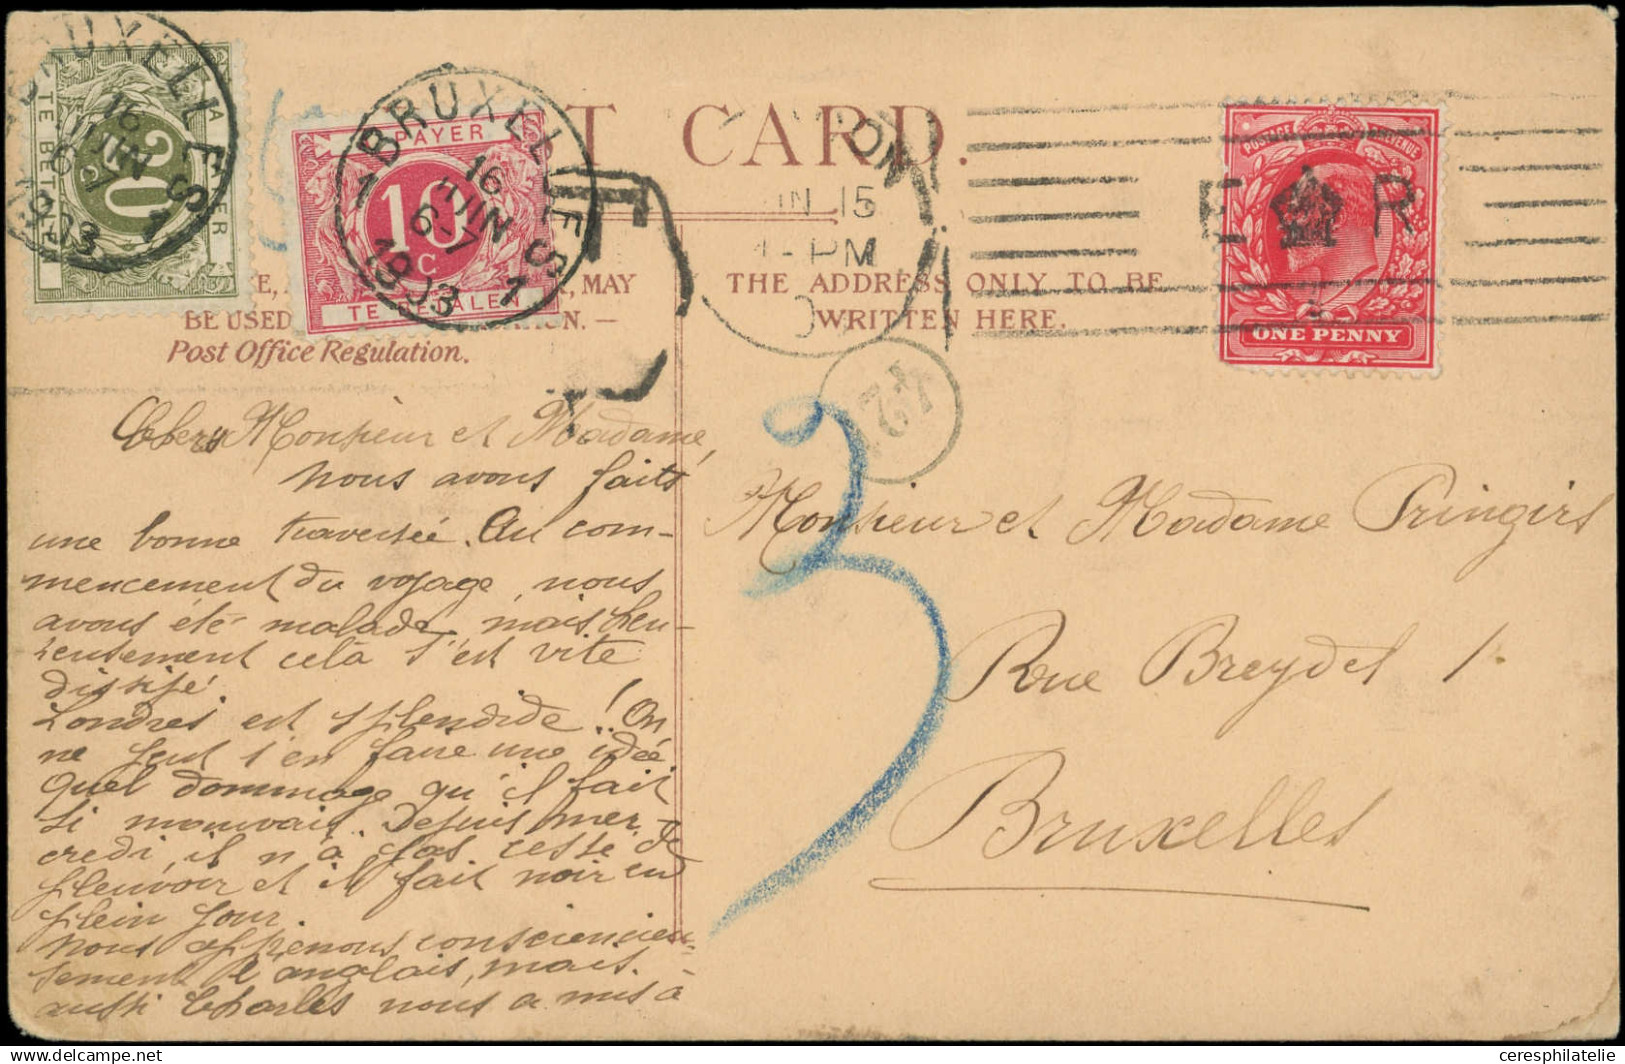 POST CARD.
MAY
BE USED
Post Office Regulation.
THE ADDRESS ONLY TO BE
WRITTEN HERE.
BRUXELLES
16
JUIN
1903
20
TE BETALEN
PAYER
10
C
TE BETALEN
BRUXELLES
1
16
JUIN
6-7
1903
JUN 15
PM
E R
POSTAGE REVENUE
ONE PENNY
T
3
Chers Monsieur et Madame,
Nous avons faits
une bonne traversée. Au com-
mencement du voyage, nous
avons été malade, mais heu-
reusement cela s'est vite
dissipé.
Londres est splendide! On
ne peut s'en faire une idée
Quel dommage qu'il fait
si mauvais. Depuis mer-
credi, il n'a pas cessé de
pleuvoir et il fait noir en
plein jour.
Nous apprenons consciencieu-
sement l'anglais, mais.
aussi Charles nous a mis à
Monsieur et Madame Pringiers
Rue Breydel 1.
Bruxelles
ceresphilatelie